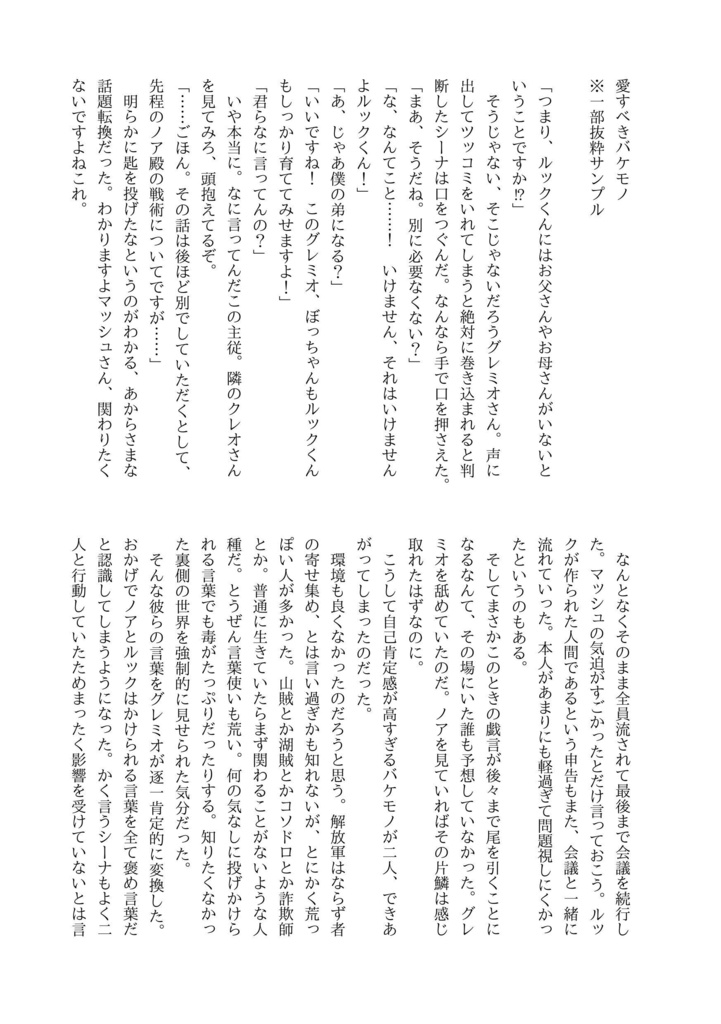 愛すべきバケモノ
※一部抜粋サンプル
「つまり、ルックくんにはお父さんやお母さんがいないと
いうことですか⁉」
　そうじゃない、そこじゃないだろうグレミオさん。声に
出してツッコミをいれてしまうと絶対に巻き込まれると判
断したシーナは口をつぐんだ。なんなら手で口を押さえた。
「まあ、そうだね。別に必要なくない？」
「な、なんてこと……！　いけません、それはいけません
よルックくん！」
「あ、じゃあ僕の弟になる？」
「いいですね！　このグレミオ、ぼっちゃんもルックくん
もしっかり育ててみせますよ！」
「君らなに言ってんの？」
　いや本当に。なに言ってんだこの主従。隣のクレオさん
を見てみろ、頭抱えてるぞ。
「……ごほん。その話は後ほど別でしていただくとして、
先程のノア殿の戦術についてですが……」
　明らかに匙を投げたなというのがわかる、あからさまな
話題転換だった。わかりますよマッシュさん、関わりたく
ないですよねこれ。
　なんとなくそのまま全員流されて最後まで会議を続行し
た。マッシュの気迫がすごかったとだけ言っておこう。ルッ
クが作られた人間であるという申告もまた、会議と一緒に
流れていった。本人があまりにも軽過ぎて問題視しにくかっ
たというのもある。
　そしてまさかこのときの戯言が後々まで尾を引くことに
なるなんて、その場にいた誰も予想していなかった。グレ
ミオを舐めていたのだ。ノアを見ていればその片鱗は感じ
取れたはずなのに。
　こうして自己肯定感が高すぎるバケモノが二人、できあ
がってしまったのだった。
　環境も良くなかったのだろうと思う。解放軍はならず者
の寄せ集め、とは言い過ぎかも知れないが、とにかく荒っ
ぽい人が多かった。山賊とか湖賊とかコソドロとか詐欺師
とか。普通に生きていたらまず関わることがないような人
種だ。とうぜん言葉使いも荒い。何の気なしに投げかけら
れる言葉でも毒がたっぷりだったりする。知りたくなかっ
た裏側の世界を強制的に見せられた気分だった。
　そんな彼らの言葉をグレミオが逐一肯定的に変換した。
おかげでノアとルックはかけられる言葉を全て褒め言葉だ
と認識してしまうようになった。かく言うシーナもよく二
人と行動していたためまったく影響を受けていないとは言